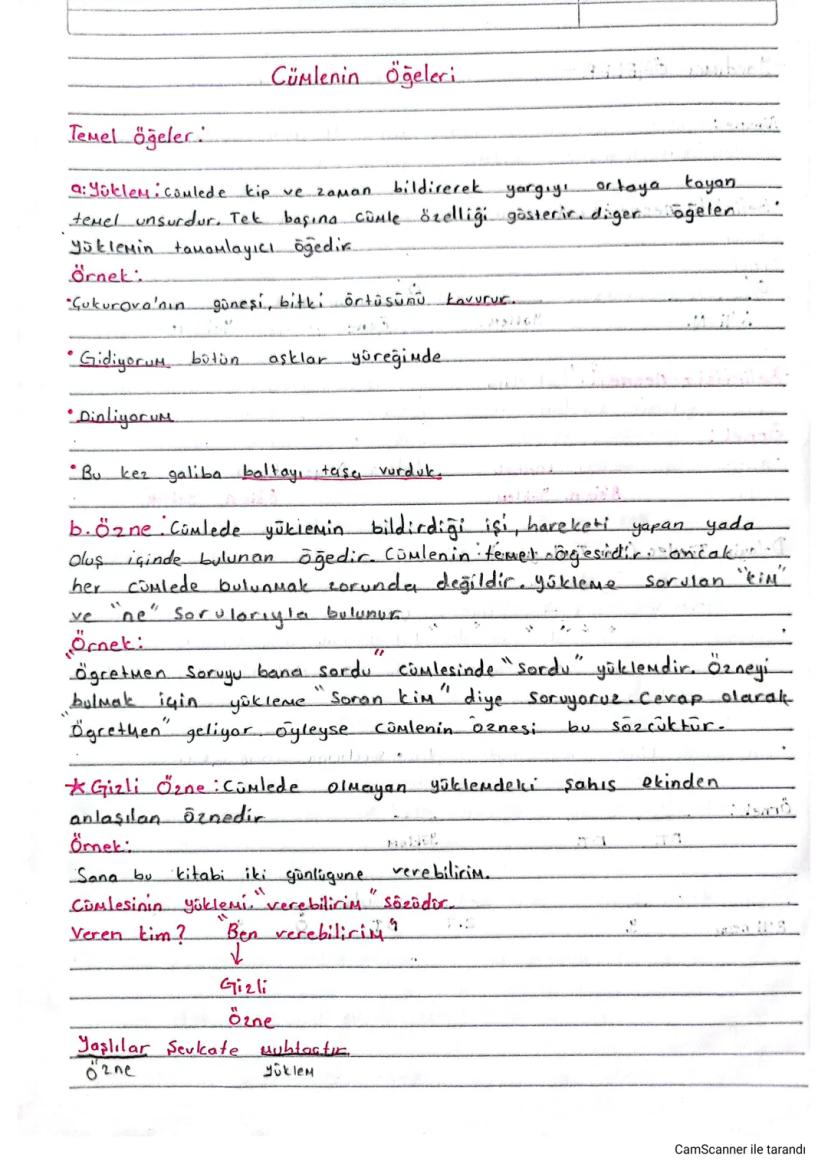 Cümlenin Öğeleri
Temel öğeler:
a: Yüklem: Cümlede kip ve zaman bildirerek yargıyı ortaya koyan
temel unsurdur. Tek başına cümle özelliği gösterir. diğer öğeler
yüklemin tamamlayıcı öğedir
Örnek:
•Çukurova'nın güneşi, bitki örtüsünü kavurur.
• Gidiyorum bütün aşklar yüreğimde
• Dinliyorum
• Bu kez galiba baltayı taşa vurduk.
b. Özne: Cümlede yüklemin bildirdiği işi, hareketi yapan yada
oluş içinde bulunan öğedir. Cümlenin temel ögesidir. ancak
her cümlede bulunmak zorunda değildir. yükleme sorulan "kim"
ve "ne" sorularıyla bulunur.
Örnek:
"Ögretmen soruyu bana sordu" cümlesinde "sordu" yüklemdir. Özneyi
bulmak için yükleme "soran kim" diye soruyoruz. Cevap olarak
"Ögretmen" geliyor. öyleyse cümlenin öznesi bu sözcüktür.
* Gizli Özne: Cümlede olmayan yüklemdeki şahıs ekinden
anlaşılan öznedir
Örnek:
Sana bu kitabi iki günlügune verebilirim.
Cümlesinin yüklemi "verebilirim" sözüdür.
Veren kim? "Ben verebilirim"
↓
Gizli
Özne
Yaşlılar Şevkate muhtaçtır.
Özne yüklem
CamScanner ile tarandı